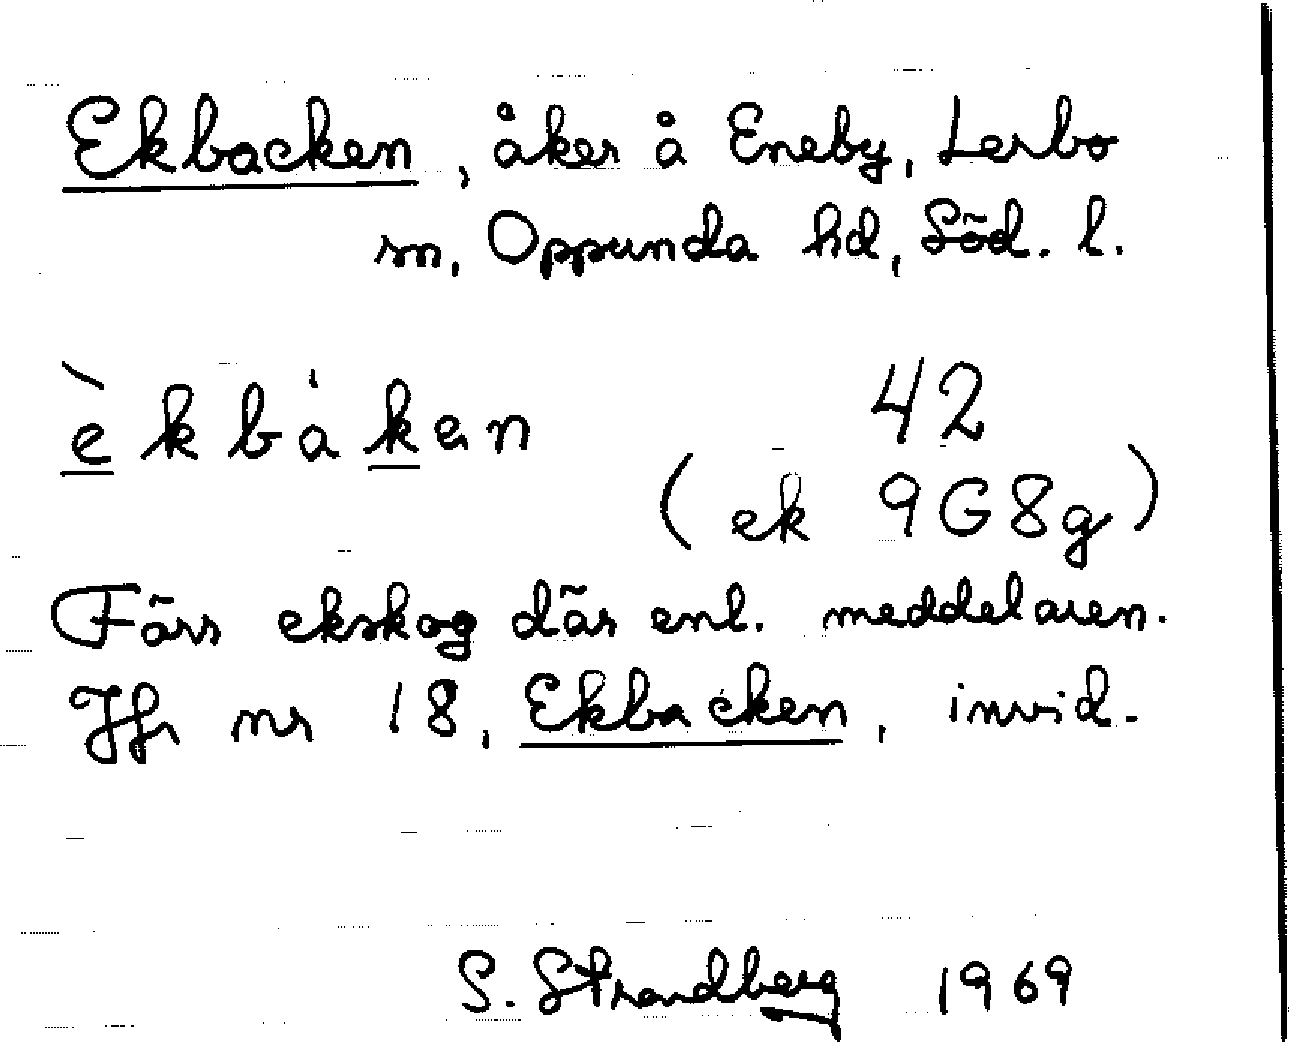 Ekbacken, åker å Eneby, Lerbo
sn, Oppunda hd, Söd. l.
èkbàken 42
(ek 9G8g)
Förr ekskog där enl. meddelaren.
Jfr nr 18, Ekbacken, invid.
S. Strandberg 1969